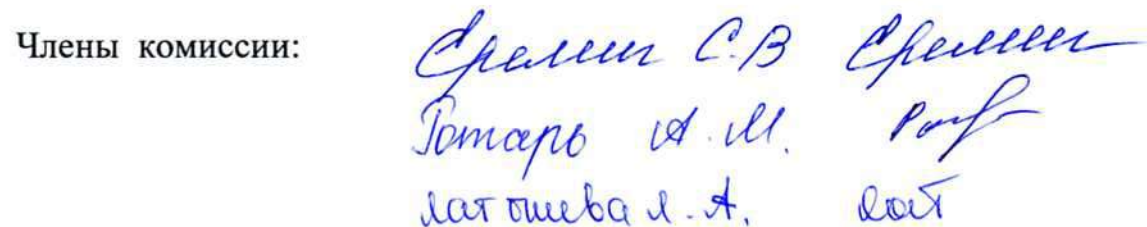 Члены комиссии: Еремин С.В Еремин
Ротарь А.М. Рот
Латышева Л.А. Лат